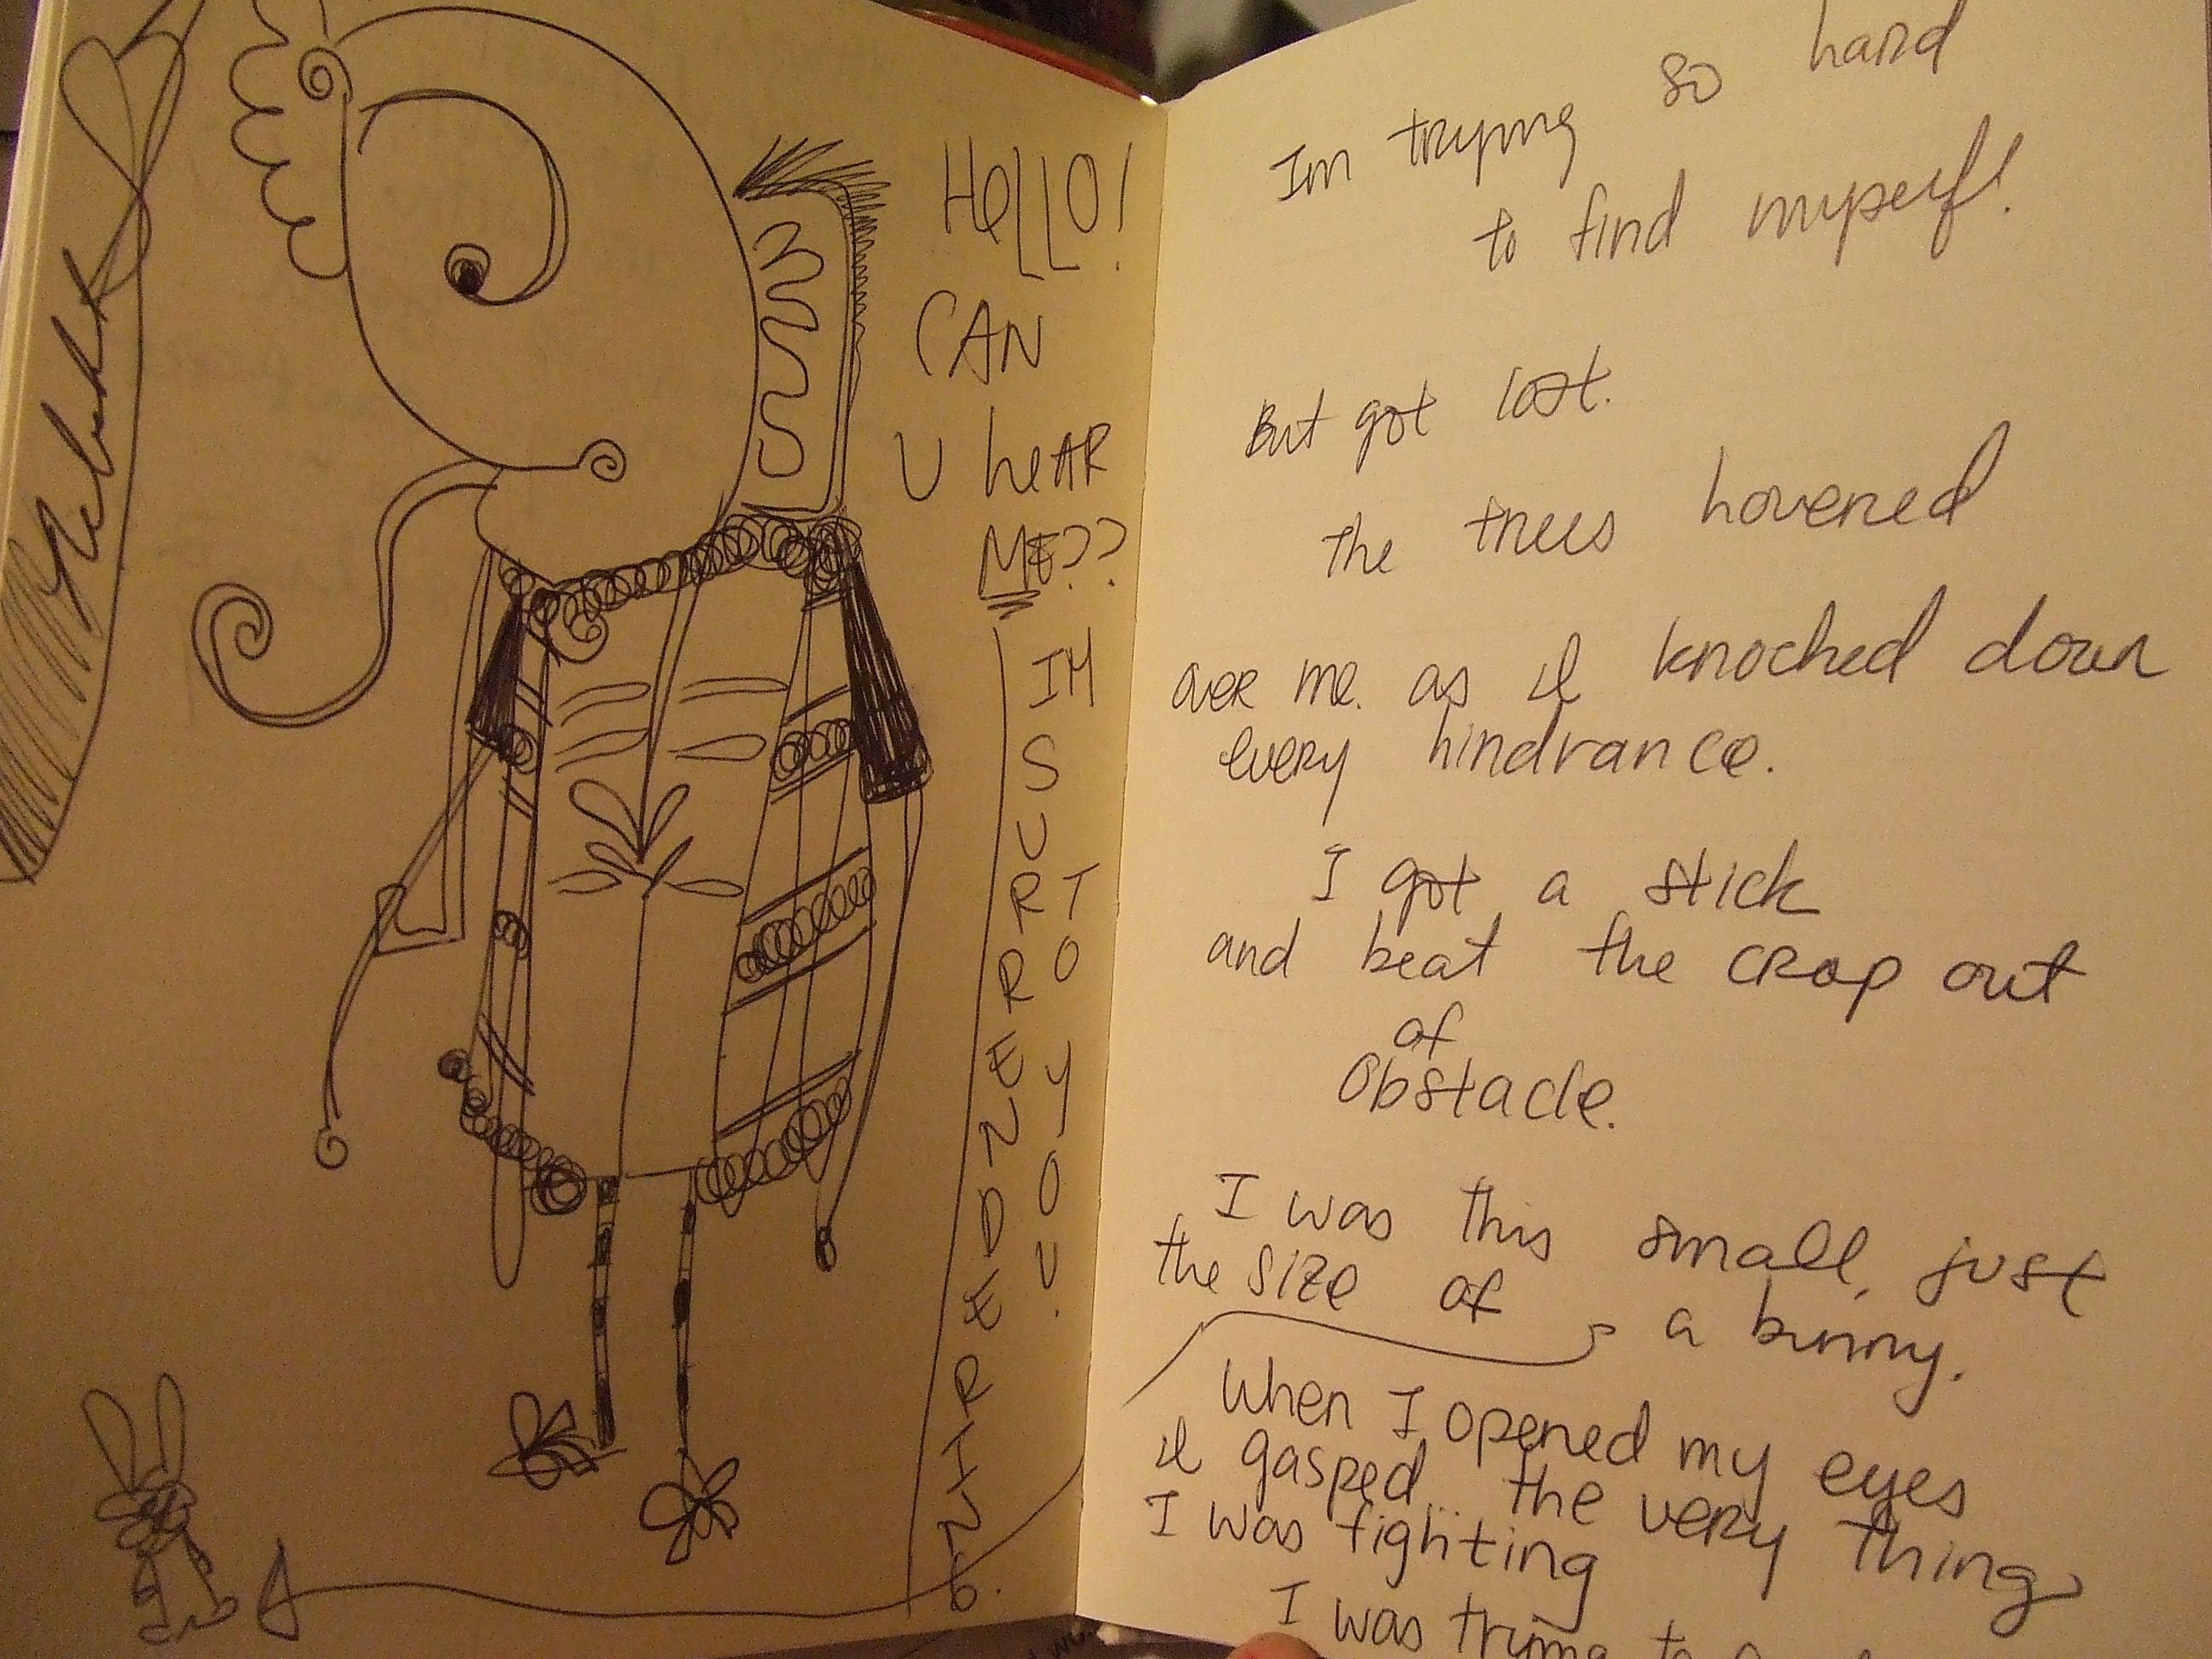 HellO!
CAN
U heAR
ME??
IM
SURRENDERING
TO YOU.
Im trying so hard
to find myself!
But got lost.
the trees hovered
over me. as I knocked down
every hindrance.
I got a stick
and beat the crap out
of
Obstacle.
I was this small, just
the size of a bunny.
When I opened my eyes
I gasped... the very thing
I was fighting
I was trying to